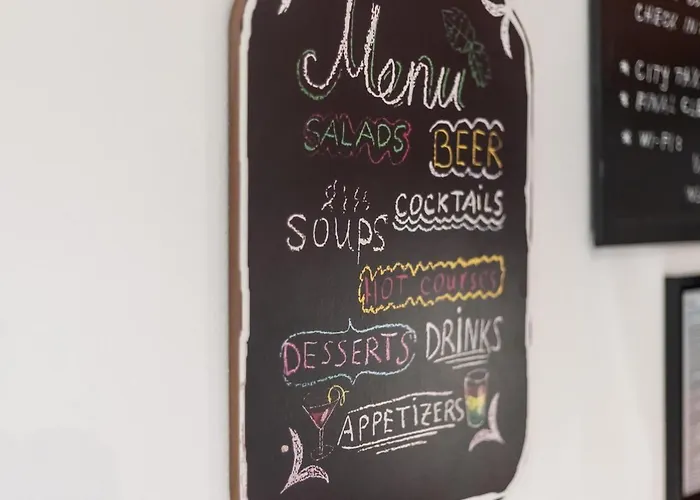 Menu
SALADS
BEER
COCKTAILS
SOUPS
HOT COURSES
DESSERTS
DRiNKS
APPETiZERS
CHECK IN
CITY
WI-FI